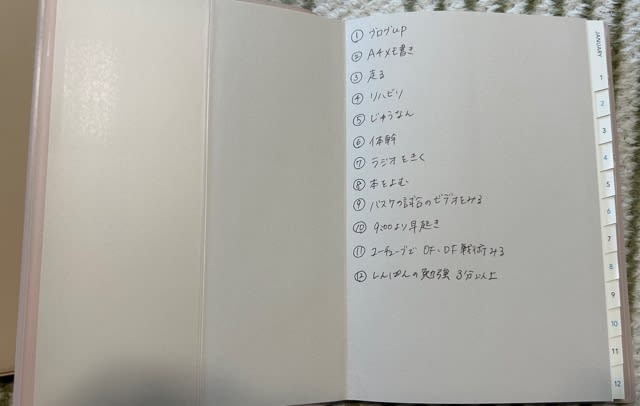 ① ブログup
② A4メモ書き
③ 走る
④ リハビリ
⑤ じゅうなん
⑥ 体幹
⑦ ラジオをきく
⑧ 本をよむ
⑨ バスケの試合のビデオをみる
⑩ 9:00より早起き
⑪ ユーチューブで OF・DF 戦術みる
⑫ しんぱんの勉強 3分以上
JANUARY
1
2
3
4
5
6
7
8
9
10
11
12